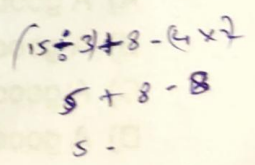 (15 ÷ 3) + 8 - (4 × 2
5 + 8 - 8
5 -